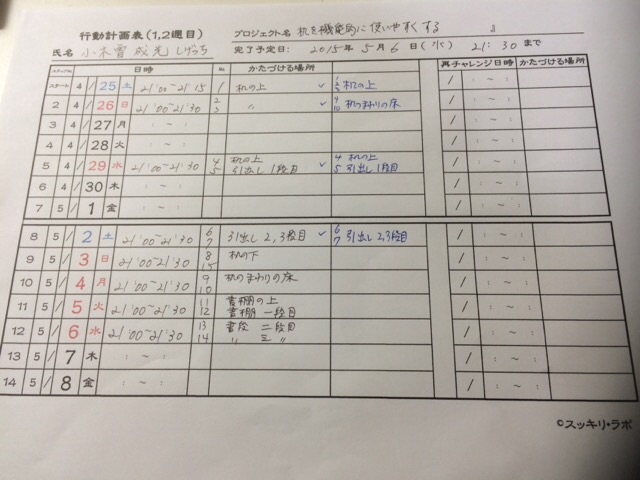 行動計画表(1,2週目) プロジェクト名 机を機能的に使いやすくする
氏名 小木曽 成光 しげっち 完了予定日: 2015年 5月 6日(水) 21:30まで
ステップNo. 日時 No かたづける場所 再チャレンジ日時 かたづける場所
スタート 4/25 土 21:00~21:15 1 机の上 ✓ 机の上 / : ~ :
2 4/26 日 21:00~21:30 2 3 〃 ✓ 4 10 机のまわりの床 / : ~ :
3 4/27 月 : ~ : / : ~ :
4 4/28 火 : ~ : / : ~ :
5 4/29 水 21:00~21:30 4 5 机の上 引出し1段目 ✓ 4 5 机の上 引出し1段目 / : ~ :
6 4/30 木 : ~ : / : ~ :
7 5/1 金 : ~ : / : ~ :
8 5/2 土 21:00~21:30 6 7 引出し2,3段目 ✓ 6 7 引出し2,3段目 / : ~ :
9 5/3 日 21:00~21:30 8 15 机の下 / : ~ :
10 5/4 月 21:00~21:30 9 10 机のまわりの床 / : ~ :
11 5/5 火 21:00~21:30 11 12 書棚の上 書棚 一段目 / : ~ :
12 5/6 水 21:00~21:30 13 14 二段目 〃 三 〃 / : ~ :
13 5/7 木 : ~ : / : ~ :
14 5/8 金 : ~ : / : ~ :
©スッキリ・ラボ